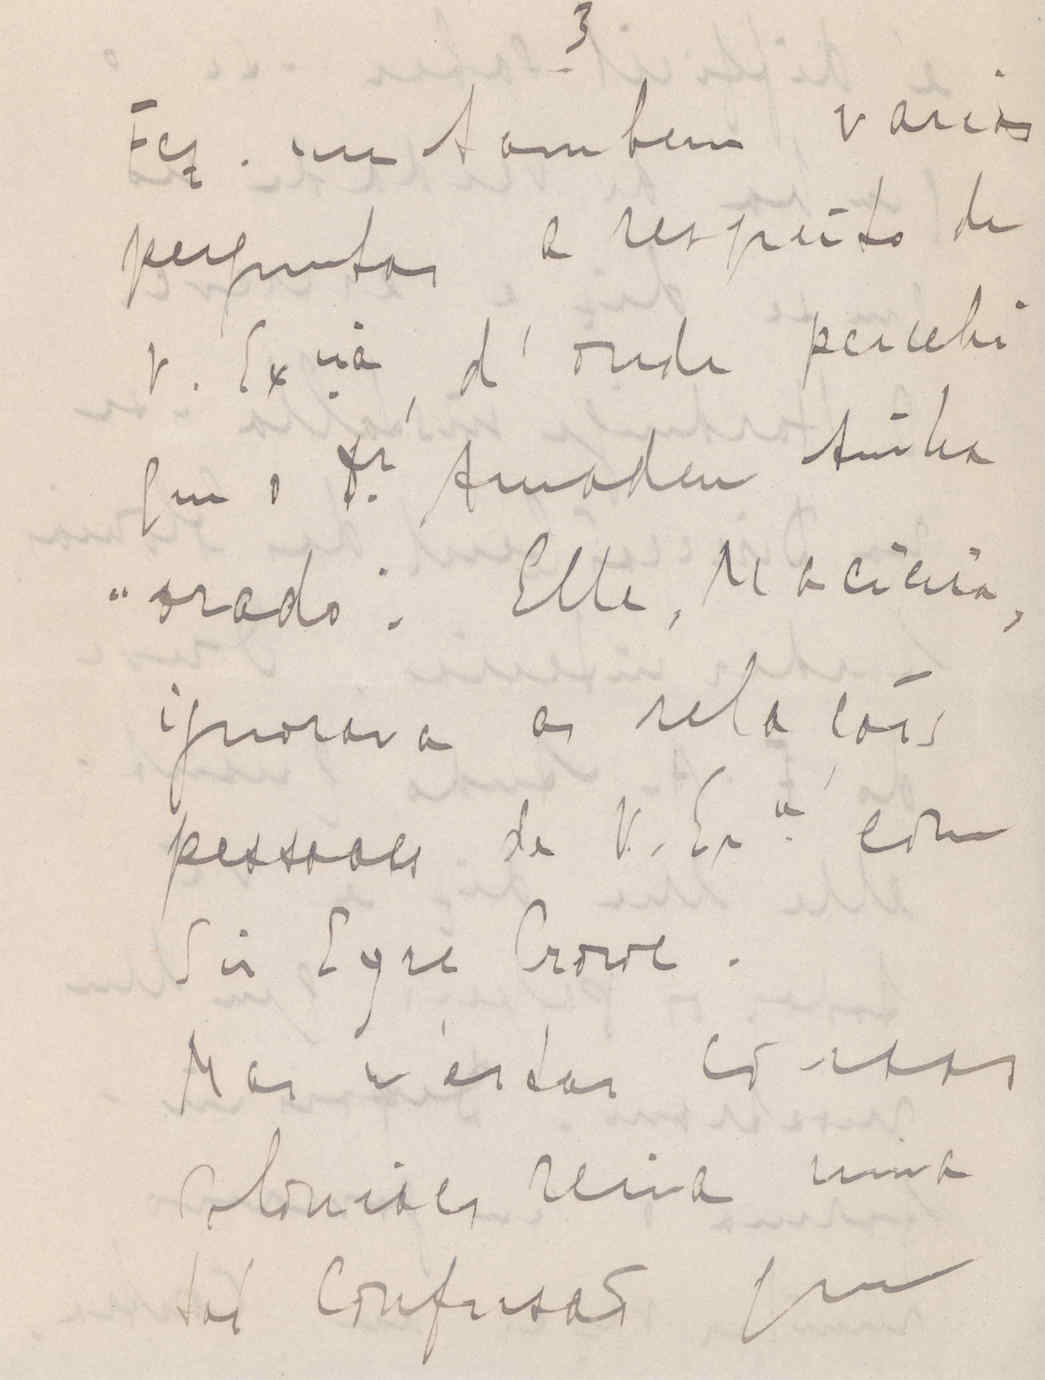 3
Fez-me tambem varias
perguntas a respeito de
V. Excia, d'onde percebi
que o Dr. Amadeu tinha
"orado". Elle, Macieira,
ignorava as relações
pessoaes de V. Exa. com
Sir Eyre Crowe.
Mas n'estas cousas
coloniaes reina uma
tal confusão que